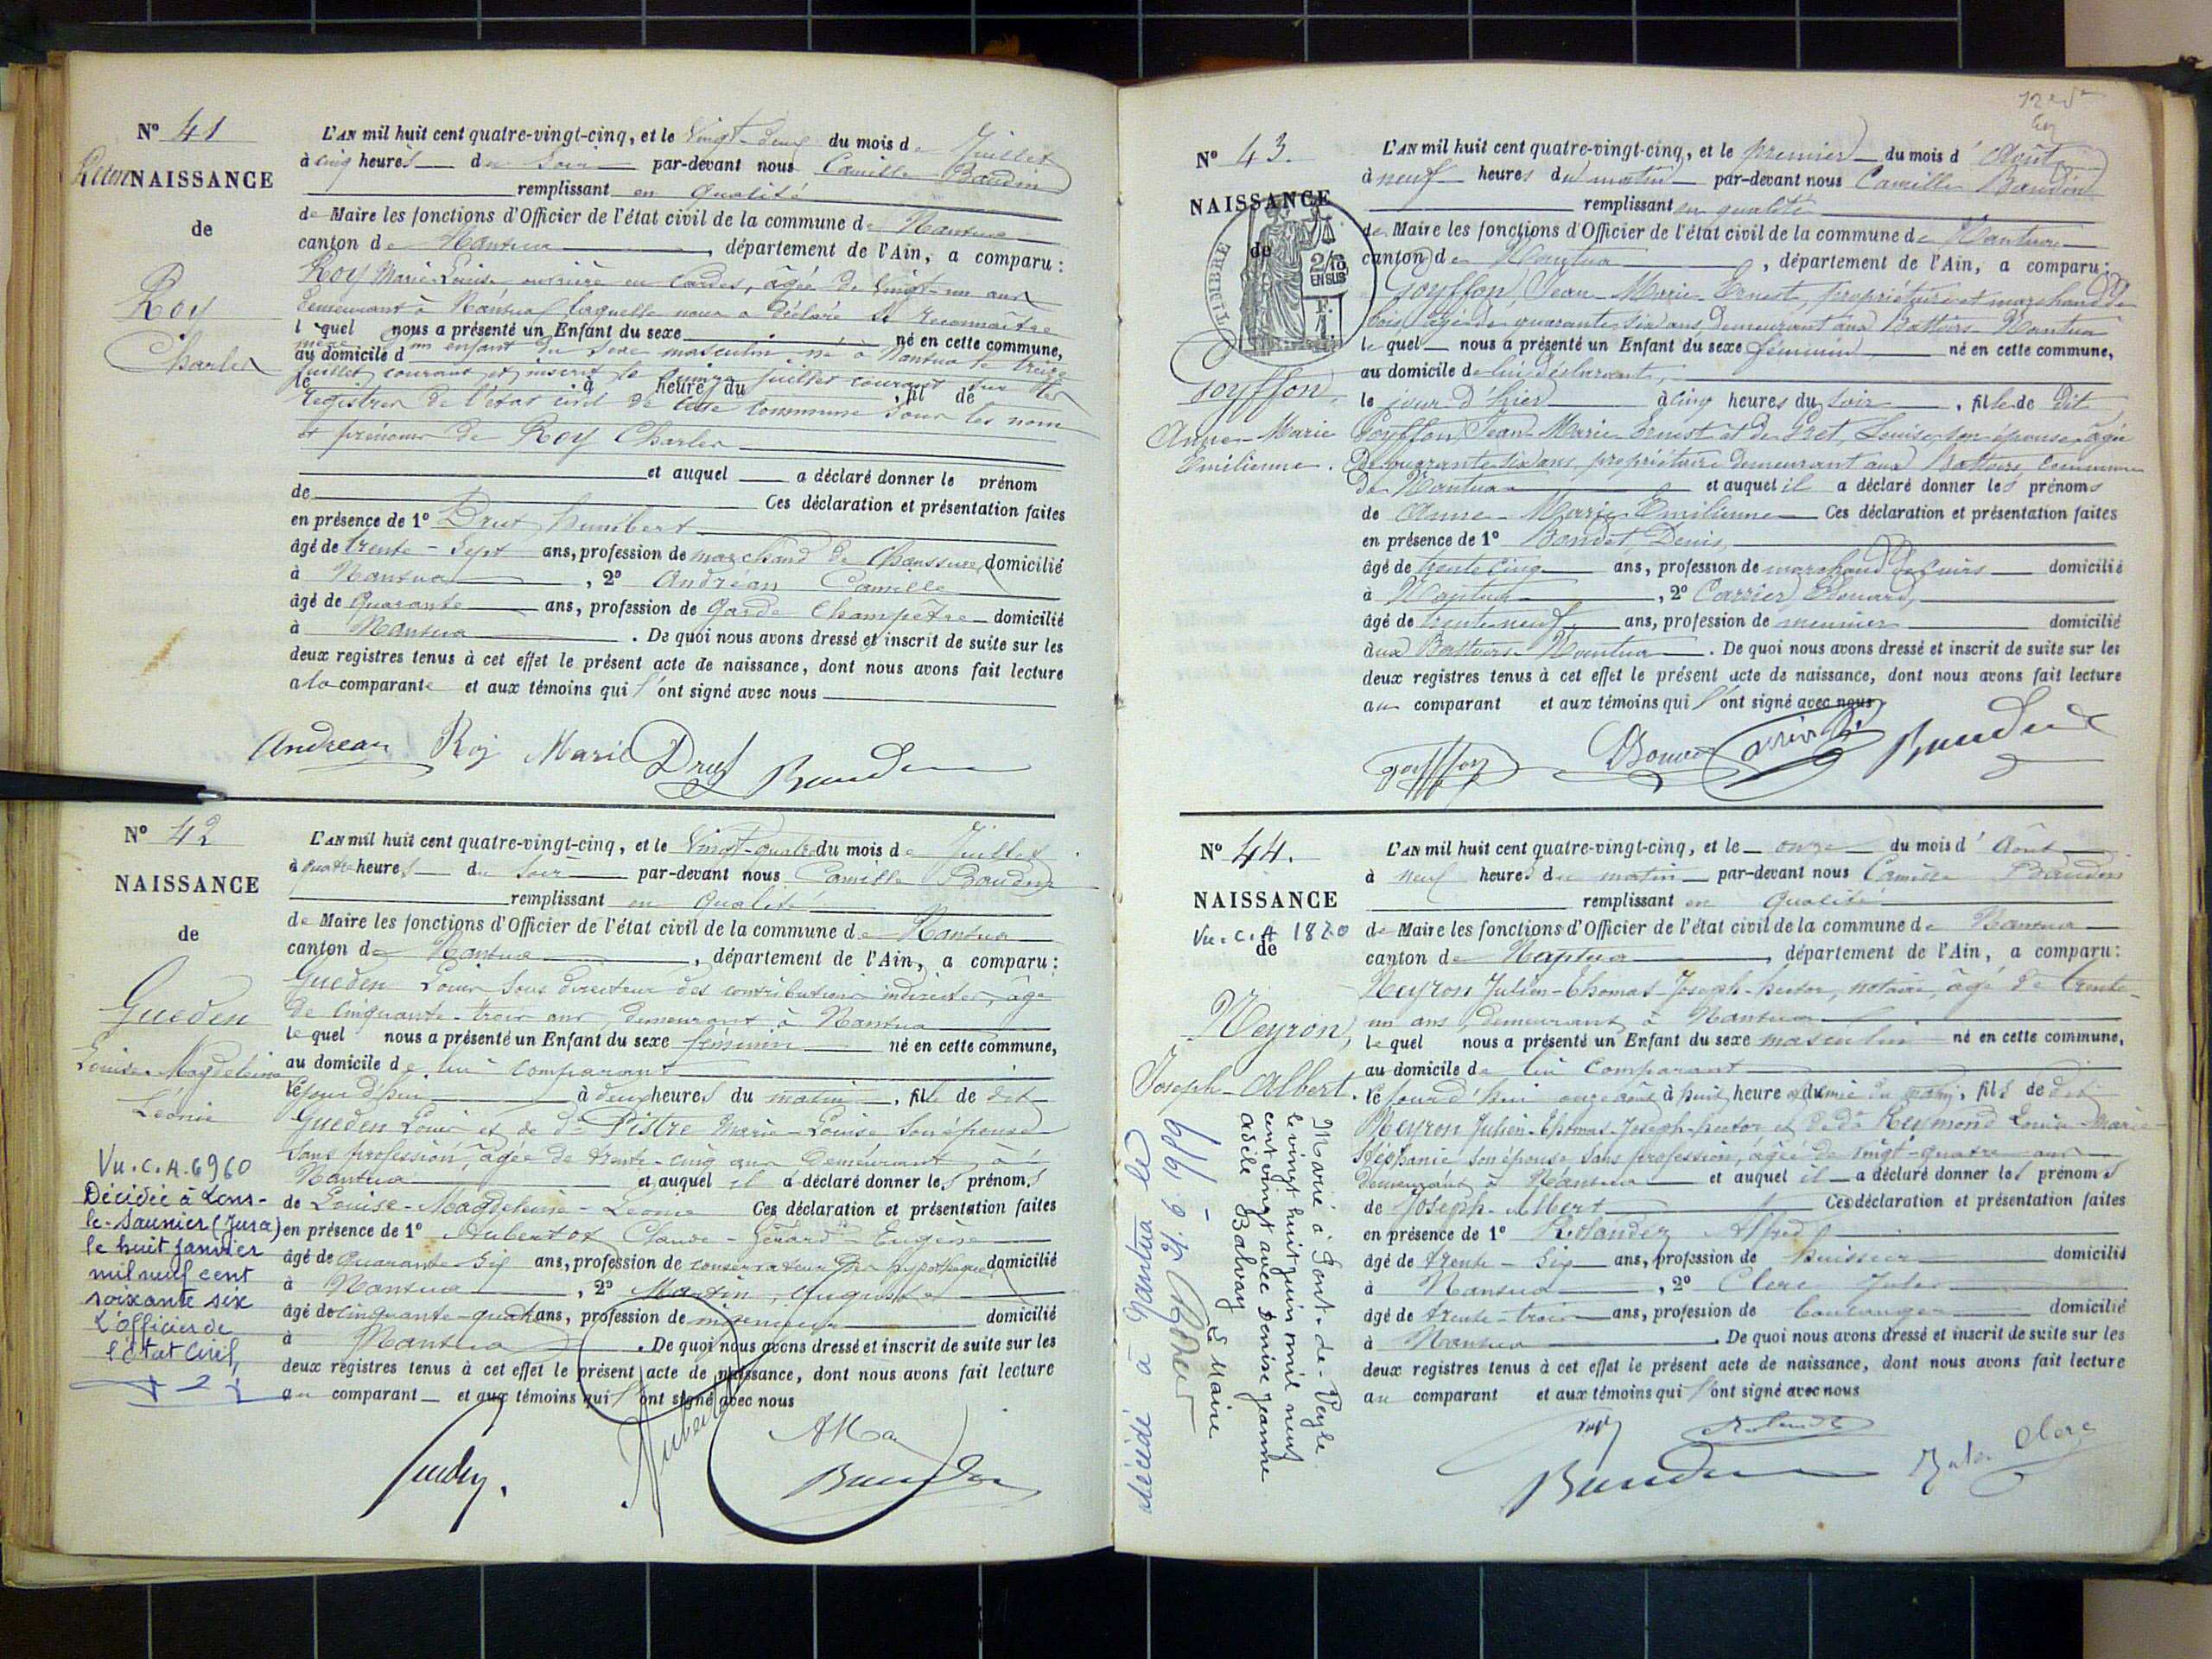 N° 41
NAISSANCE
de
Roy
Charles
L'AN mil huit cent quatre-vingt-cinq, et le Vingt-deux du mois de Juillet
à cinq heures du Soir par-devant nous Camille Baudin
remplissant en qualité
de Maire les fonctions d'Officier de l'état civil de la commune de Nantua
canton de Nantua, département de l'Ain, a comparu :
Roy Marie-Louise, ouvrière en Cardes, âgée de Vingt-un ans
demeurant à Nantua laquelle nous a déclaré reconnaître
l quel nous a présenté un Enfant du sexe né en cette commune,
au domicile d un enfant du sexe masculin né à Nantua le treize
juillet courant et inscrit le quinze juillet courant sur les
le à heure du , fil de
registres de l'état civil de cette Commune sous les nom
et prénoms de Roy Charles
et auquel a déclaré donner le prénom
de Ces déclaration et présentation faites
en présence de 1° Drut humbert
âgé de trente-sept ans, profession de marchand de Chaussures domicilié
à Nantua, 2° Andréan Camille
âgé de Quarante ans, profession de Garde Champêtre domicilié
à Nantua. De quoi nous avons dressé et inscrit de suite sur les
deux registres tenus à cet effet le présent acte de naissance, dont nous avons fait lecture
a la comparante et aux témoins qui l'ont signé avec nous
Andrean Roy Marie Drut Baudin
N° 42
NAISSANCE
de
Gueden
Louise-Magdeleine
Léonie
Vu.C.A.6960
Décédée à Lons-
le-Saunier (Jura)
le huit janvier
mil neuf cent
soixante six
L'Officier de
l'état civil,
L'AN mil huit cent quatre-vingt-cinq, et le Vingt-quatre du mois de Juillet
à quatre heures du soir par-devant nous Camille Baudin
remplissant en qualité
de Maire les fonctions d'Officier de l'état civil de la commune de Nantua
canton de Nantua, département de l'Ain, a comparu :
Gueden Louis Sous directeur des contributions indirectes, âgé
de cinquante-trois ans, demeurant à Nantua
lequel nous a présenté un Enfant du sexe féminin né en cette commune,
au domicile de lui comparant
le jour d'hui à deux heures du matin, fille de dit
Gueden Louis et de de Pistre Marie-Louise son épouse
Sans profession, âgée de trente-cinq ans demeurant à
Nantua et auquel il a déclaré donner les prénoms
de Louise-Magdeleine-Léonie Ces déclaration et présentation faites
en présence de 1° Aubertot Claude-Gérard-Eugène
âgé de Quarante-six ans, profession de conservateur des hypothèques domicilié
à Nantua, 2° Martin, Auguste
âgé de cinquante-quatre ans, profession de ingénieur domicilié
à Nantua. De quoi nous avons dressé et inscrit de suite sur les
deux registres tenus à cet effet le présent acte de naissance, dont nous avons fait lecture
au comparant et aux témoins qui l'ont signé avec nous
Aubertot
Baudin
N° 43.
NAISSANCE
de
TIMBRE
2/10
EN SUS
Goyffon,
Anne-Marie
Emilienne.
L'AN mil huit cent quatre-vingt-cinq, et le premier du mois d'Août
à neuf heures du matin par-devant nous Camille Baudin
remplissant en qualité
de Maire les fonctions d'Officier de l'état civil de la commune de Nantua
canton de Nantua, département de l'Ain, a comparu :
Goyffon, Jean-Marie-Ernest, propriétaire et marchand de
bois, âgé de quarante-six ans, demeurant aux Battoirs-Nantua
lequel nous a présenté un Enfant du sexe féminin né en cette commune,
au domicile de lui déclarant,
le jour d'hier à cinq heures du soir, fille de dit
Goyffon, Jean-Marie-Ernest et de Gret, Louise, son épouse, âgée
de quarante-six ans, propriétaire demeurant aux Battoirs, commune
de Nantua et auquel il a déclaré donner les prénoms
de Anne-Marie-Emilienne Ces déclaration et présentation faites
en présence de 1° Bonvet, Denis,
âgé de trente cinq ans, profession de marchand de cuirs domicilié
à Nantua, 2° Carrier, Edouard,
âgé de trente-neuf ans, profession de meunier domicilié
aux Battoirs-Nantua. De quoi nous avons dressé et inscrit de suite sur les
deux registres tenus à cet effet le présent acte de naissance, dont nous avons fait lecture
au comparant et aux témoins qui l'ont signé avec nous
Goyffon Bonvet Carrier Baudin
N° 44.
NAISSANCE
Vu.C.A 1820
de
Neyron,
Joseph-Albert.
Marié à Pont-de-Veyle
le vingt huit juin mil neuf
cent vingt avec Denise Jeanne
Adèle Balvay Le Maire
décédé à Nantua le
L'AN mil huit cent quatre-vingt-cinq, et le onze du mois d'Août
à neuf heures du matin par-devant nous Camille Baudin
remplissant en qualité
de Maire les fonctions d'Officier de l'état civil de la commune de Nantua
canton de Nantua, département de l'Ain, a comparu :
Neyron Julien-Thomas-Joseph-hector, notaire, âgé de trente-
un ans, demeurant à Nantua
lequel nous a présenté un Enfant du sexe masculin né en cette commune,
au domicile de lui comparant
le jour d'hui onze août à huit heure et demie du matin, fils de dit
Neyron Julien-Thomas-Joseph-hector et de de Reymond Louise-Marie-
Stéphanie son épouse sans profession, âgée de vingt-quatre ans
demeurant à Nantua et auquel il a déclaré donner les prénoms
de Joseph-Albert Ces déclaration et présentation faites
en présence de 1° Rolandez Alfred
âgé de trente-six ans, profession de huissier domicilié
à Nantua, 2° Clerc Jules
âgé de trente-trois ans, profession de boulanger domicilié
à Nantua. De quoi nous avons dressé et inscrit de suite sur les
deux registres tenus à cet effet le présent acte de naissance, dont nous avons fait lecture
au comparant et aux témoins qui l'ont signé avec nous
Baudin Jules Clerc